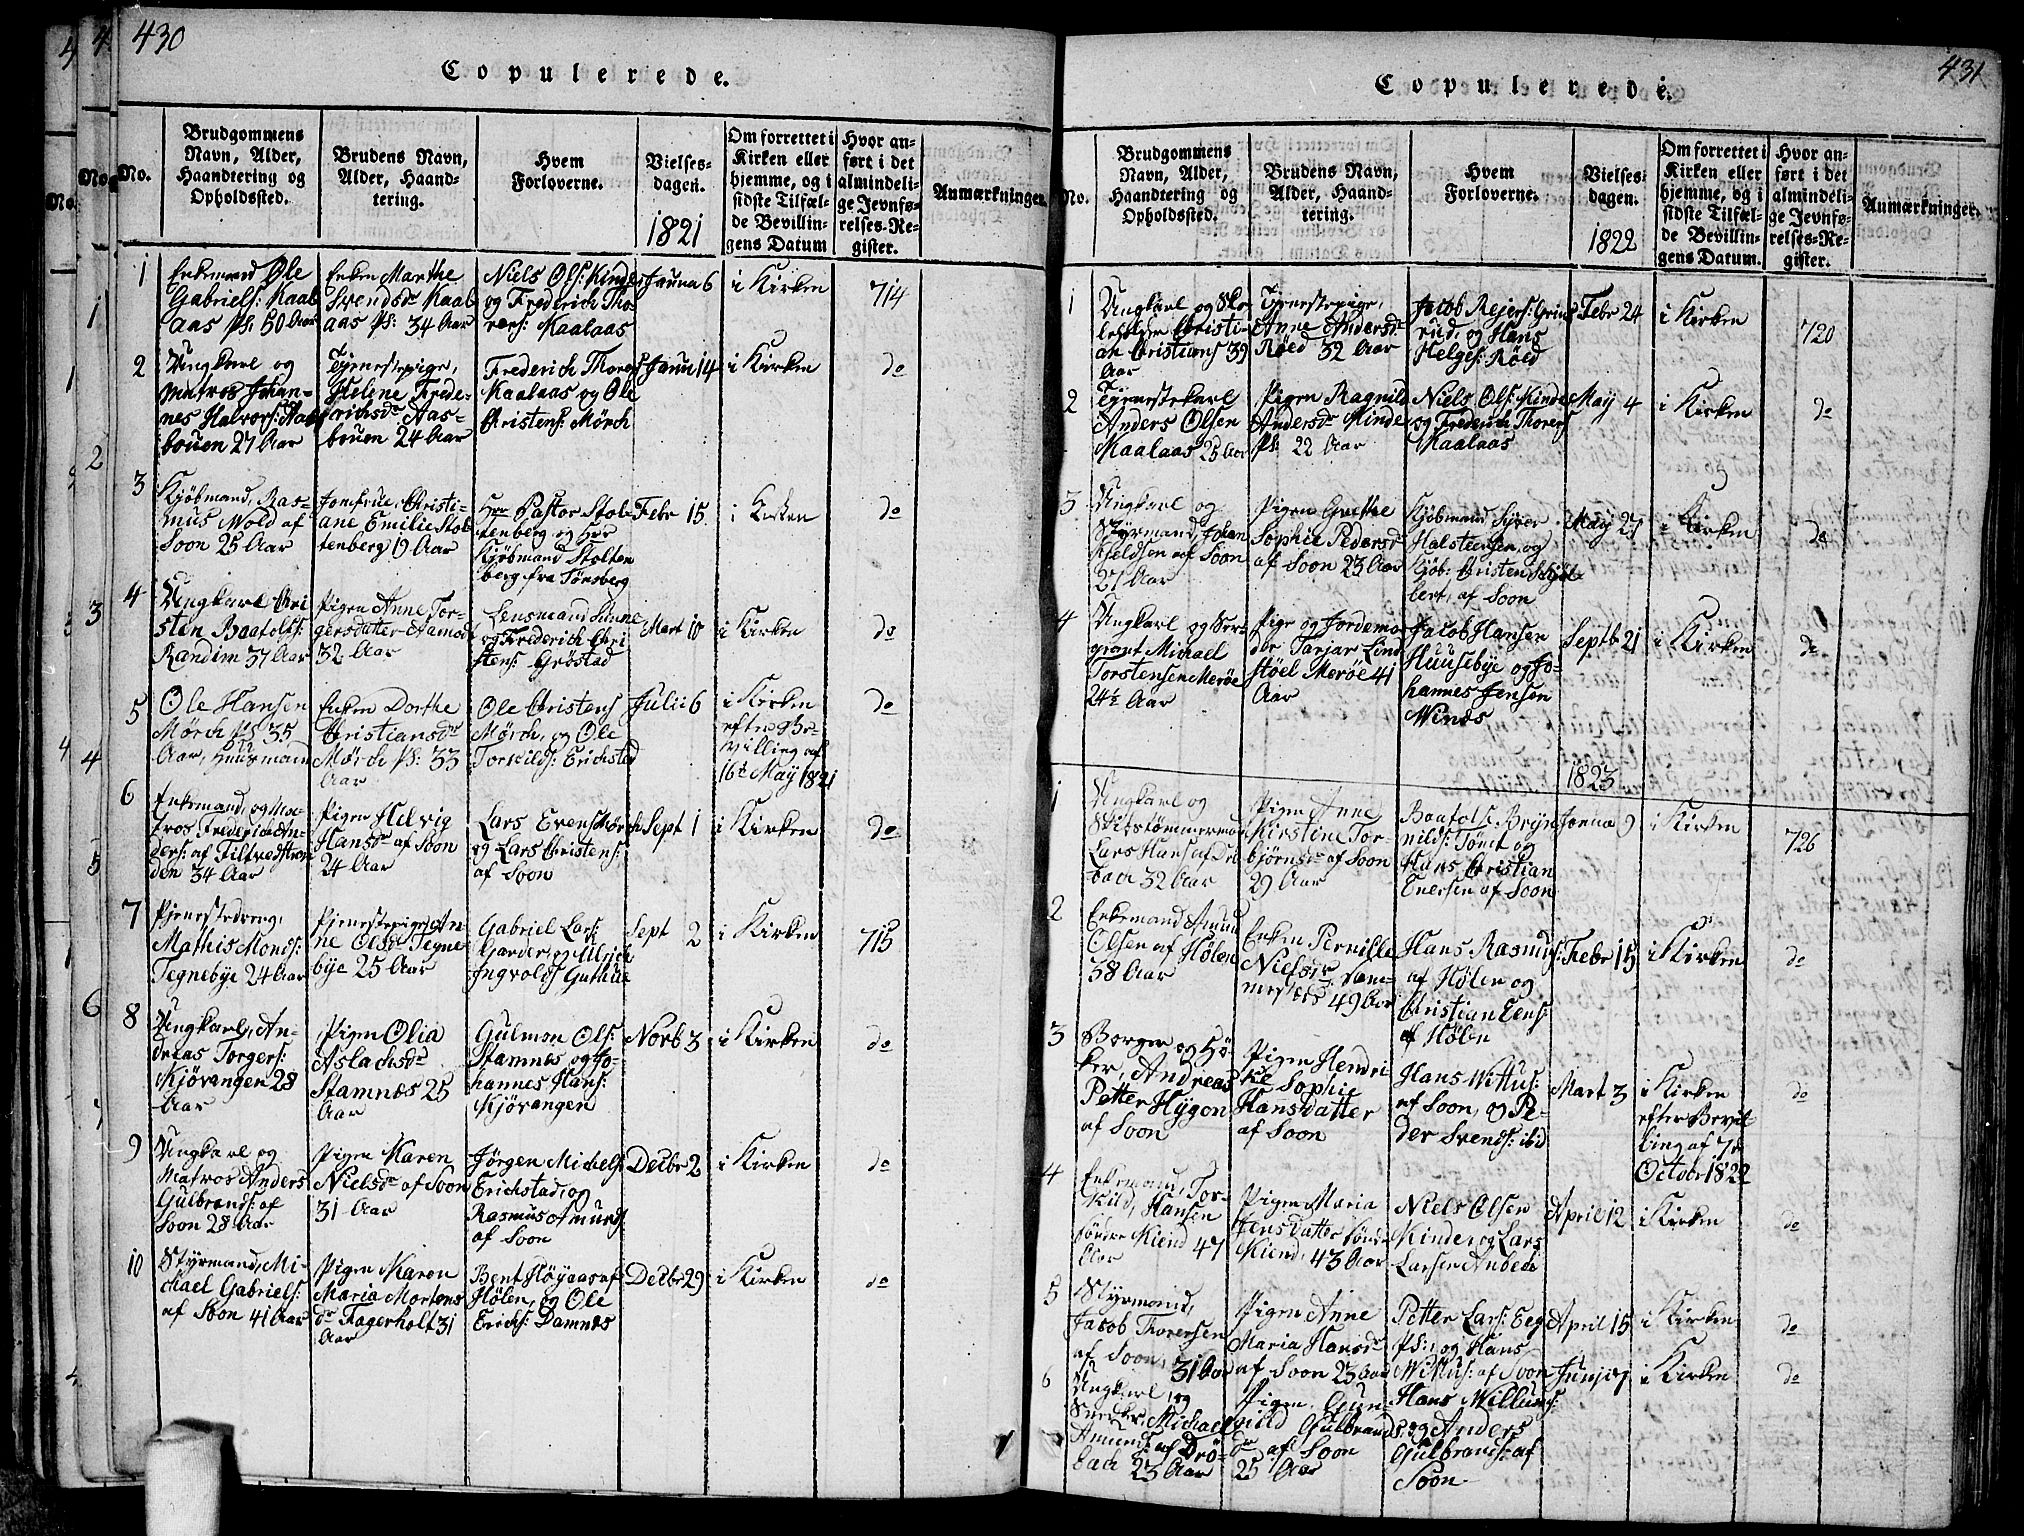 430
Copulerede.
No.
Brudgommens
Navn, Alder,
Haandtering og
Opholdssted.
Brudens Navn,
Alder, Haand-
tering.
Hvem
Forloverne.
Vielses-
dagen.
1821
Om forrettet i
Kirken eller
hjemme, og i
sidste Tilfæl-
de Bevillin-
gens Datum
Hvor an-
ført i det
almindeli-
ge Jevnfø-
relses-Re-
gister.
Anmærkninger.
1
Enkemand Ole
Gabriels: Kaal
aas Ps: 50 Aar
Enken Marthe
Svendsdr Kaal
aas Ps: 34 Aar
Niels Ols: Kinde
og Frederich Tho
rers: Kaalaas
Janua 6
i Kirken
714
2
Ungkarl og
Matros Johan-
nes Halvors: Aas
bouen 27 Aar
Tjenestepige,
Helene Frede-
richsdr Aas-
bouen 24 Aar
Frederich Thorers
Kaalaas og Ole
Christens: Mörch
Janu 14
i Kirken
do
3
Kjöbmand, Ras-
mus Wold af
Soon 25 Aar
Jomfrue, Christi-
ane Emilie Stol
tenberg 19 Aar
Hrr Pastor Stol-
tenberg og Hrr
Kjöbmand Stolten
berg fra Tönsberg
Febr 15
i Kirken
do
4
Ungkarl Chri
sten Baatolfs:
Randim 37 Aar
Pigen Anne Tor-
gersdatter Aamodt
32 Aar
Lensmand
og Frederich Chri
stens: Gröstad
Mart 10
i Kirken
do
5
Ole Hansen
Mörch Ps 35
Aar, Huusmand
Enken Dorthe
Christiansdr
Mörch Ps: 33
Aar
Ole Christens
Mörch, og Ole
Torkilds: Erichstad
Julii 6
i Kirken
efter Be-
villing af
16de May 1821
do
6
Enkemand, og Ma-
tros Frederich An-
ders: af Filtvedstran
den 34 Aar
Pigen Helvig
Hansdr af Soon
24 Aar
Lars Evens: Mörch
og Lars Christens:
af Soon
Sept 1
i Kirken
do
7
Tjenestedreng,
Mathis Monds:
Tegnebye 24 Aar
Tjenestepige An-
ne Olsdr Tegne
bye 25 Aar
Gabriel Lars:
Garder, og Ulrich
Ingvolds Guthue
Sept 2
i Kirken
715
8
Ungkarl, An-
dreas Torgers:
Kjövangen 28
Aar
Pigen Olia
Aslachsdr
Stamnæs 25
Aar
Gulmon Ols:
Stamnes og Jo-
hannes Hans:
Kjövangen
Novb 3
i Kirken
do
9
Ungkarl og
Matros Anders
Gulbrands: af
Soon 28 Aar
Pigen Karen
Nielsdr af Soon
31 Aar
Jörgen Michels:
Erichstad, og
Rasmus Amunds
af Soon
Decbr 2
i Kirken
do
10
Styrmand, Mi-
chael Gabriels:
af Soon 41 Aar
Pigen Karen
Maria Mortens
dr Fagerholt 31
Aar
Bent Höyaas af
Hölen, og Ole
Erichs: Damnæs
Decbr 29
i Kirken
do
431
Copulerede.
No.
Brudgommens
Navn, Alder,
Haandtering og
Opholdssted.
Brudens Navn,
Alder, Haand-
tering.
Hvem
Forloverne.
Vielses-
dagen.
1822
Om forrettet i
Kirken eller
hjemme, og i
sidste Tilfæl-
de Bevillin-
gens Datum.
Hvor an-
ført i det
almindeli-
ge Jevnfø-
relses-Re-
gister.
Anmærkninger.
1
Ungkarl og Sko
leholder Christi-
an Christians 39
Aar
Tjenestepige,
Anne Andersdr
Röed 32 Aar
Jacob Rejers: Grim
rud, og Hans
Helges: Röed
Febr 24
i Kirken
720
2
Tjenestekarl
Anders Olsen
Kaalaas 25 Aar
Pigen Ragnild
Andersdr Kinde
Ps: 22 Aar
Niels Ols: Kinde
og Frederich Thorers
Kaalaas
May 4
i Kirken
do
3
Ungkarl og
Styrmand, Johan
Kjeldsen af Soon
27 Aar
Pigen Grethe
Sophie Pedersdr
af Soon 23 Aar
Kjöbmand Syver
Halsteensen, og
Kjöb: Christen
af Soon
May 27
i Kirken
do
4
Ungkarl og Ser-
grant Michael
Torstensen Meröe
24½ Aar
Pige og Jordemo-
der Tarjar Lind
stöel Meröe 41
Aar
Jacob Hansen
Huusebye og Jo-
hannes Jensen
Winæs
Septb 21
i Kirken
do
1823
1
Ungkarl og
Skibstömmermand
Lars Hans: af Drö
bach 32 Aar
Pigen Anne
Kirstine Tor-
björnsdr af Soon
29 Aar
Baatolf Bryn
nilds: Tönt og
Hans Christian
Enersen af Soon
Janua 9
i Kirken
726
2
Enkemand Amun
Olsen af Hölen
58 Aar
Enken Pernille
Nielsdr
49 Aar
Hans Rasmus:
af Hölen og
Christian Eens:
af Hölen
Febr 15
i Kirken
do
3
Borger og Hö-
ker, Andreas
Petter Hygen
af Soon
Pigen Hendri
ke Sophie
Hansdatter
af Soon
Hans Wittus:
af Soon, og Pe-
der Svends: ibid
Mart 3
i Kirken
efter Bevil
ling af 7de
October 1822
do
4
Enkemand, Tor-
kild, Hansen
söndre Kiend 47
Aar
Pigen Maria
Jensdatter söndre
Kiend, 43 Aar
Niels Olsen
Kinde, og Lars
Larsen Anbech
April 12
i Kirken
do
5
Styrmand,
Jacob Thorersen
af Soon, 31 Aar
Pigen Anne
Maria Hansdr
af Soon 23 Aar
Petter Lars: Eeg
Ps:, og Hans
Wittus: af Soon
April 15
i Kirken
do
6
Ungkarl, og
Snedker, Michael
Amunds: af Drö-
bach 23 Aar
Pigen Gun-
nild Gulbrands
dr af Soon
25 Aar
Hans Willums:
og Anders
Gulbrands: af
Soon
Junj 7
i Kirken
do